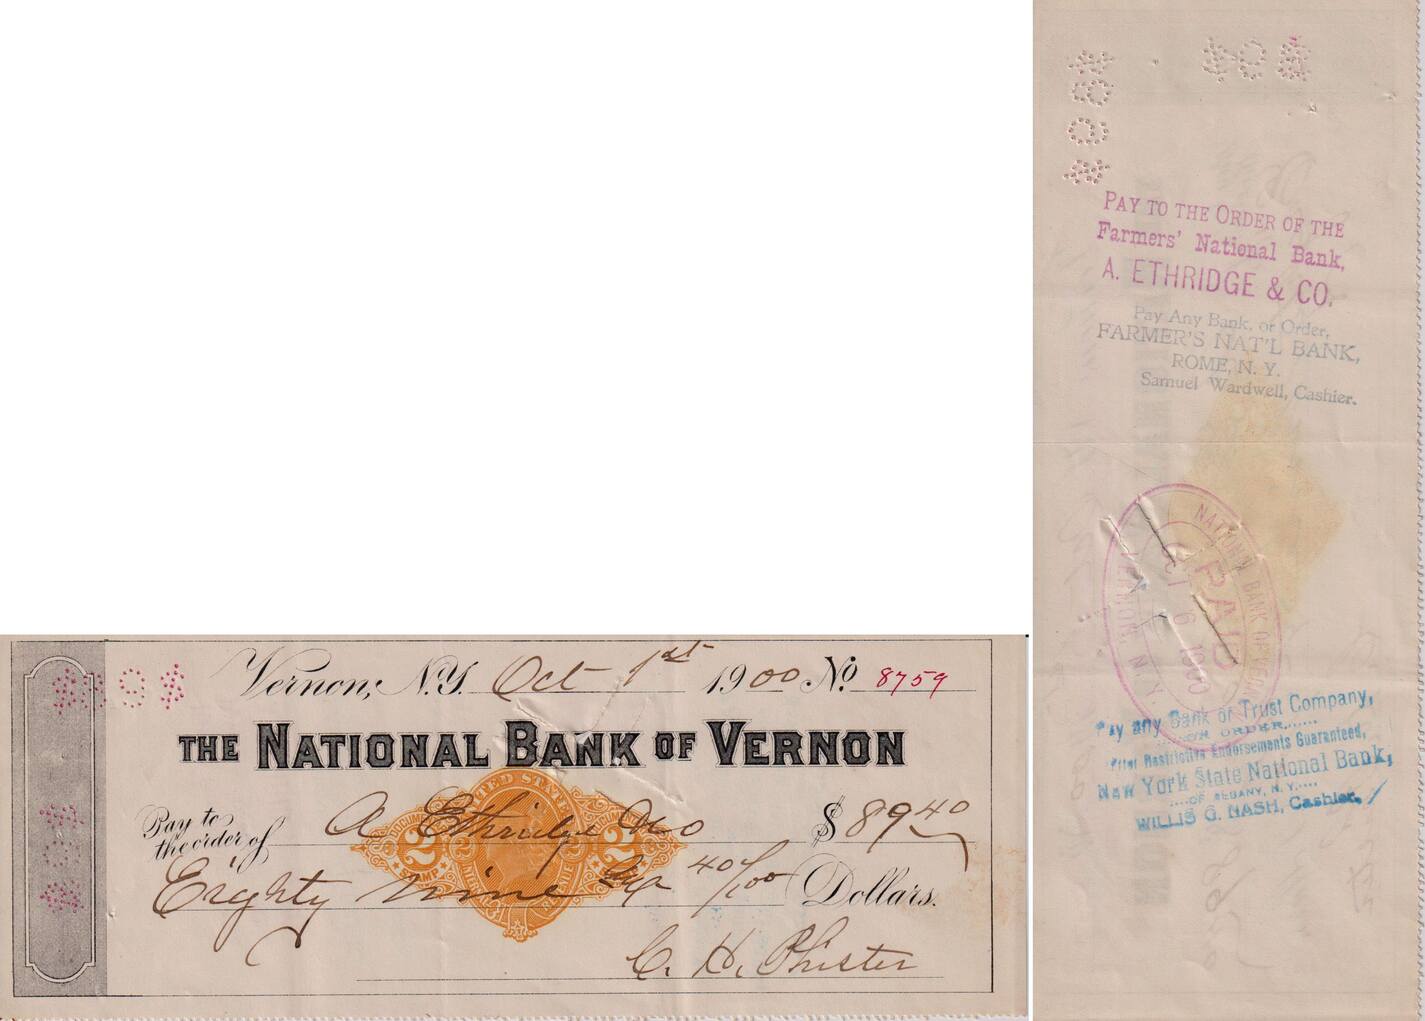 Vernon, N.Y. Oct 1st 1900 No. 8759
THE NATIONAL BANK OF VERNON
Pay to the order of A Ethridge & Co $89 40
Eighty nine & 40/100 Dollars.
C. H. Phister
UNITED STATES
2 2
STAMP
PAY TO THE ORDER OF THE
Farmers' National Bank,
A. ETHRIDGE & CO.
Pay Any Bank, or Order,
FARMER'S NAT'L BANK,
ROME, N. Y.
Samuel Wardwell, Cashier.
NATIONAL BANK OF VERNON
PAID
OCT 6 1900
VERNON N.Y.
Pay any Bank or Trust Company,
OR ORDER
Prior Restrictive Endorsements Guaranteed,
New York State National Bank,
OF ALBANY, N. Y.
WILLIS G. NASH, Cashier.